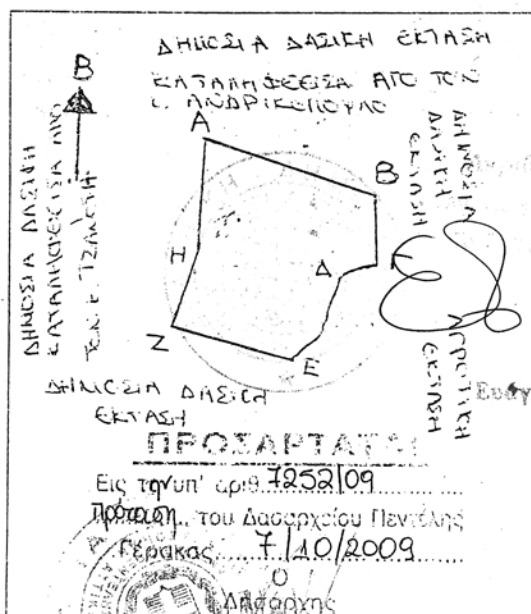 ΔΗΜΟΣΙΑ ΔΑΣΙΚΗ ΕΚΤΑΣΗ
ΚΑΤΑΛΗΦΘΕΙΣΑ ΑΠΟ ΤΟΝ
Ε. ΑΝΔΡΙΚΟΠΟΥΛΟ
Β
Α
Β
Γ
Δ
Ε
Ζ
Η
ΔΗΜΟΣΙΑ ΔΑΣΙΚΗ
ΚΑΤΑΛΗΦΘΕΙΣΑ ΑΠΟ
ΤΟΝ Ε.
ΔΗΜΟΣΙΑ
ΔΑΣΙΚΗ
ΕΚΤΑΣΗ
ΑΓΡΟΤΙΚΗ
ΕΚΤΑΣΗ
ΔΗΜΟΣΙΑ ΔΑΣΙΚΗ
ΕΚΤΑΣΗ
ΠΡΟΣΑΡΤΑΤΑΙ
Εις την υπ' αριθ. 7252/09
πρόταση.. του Δασαρχείου Πεντέλης
Γέρακας 7/10/2009
Ο
Δασάρχης